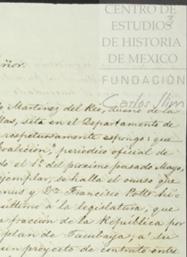 CENTRO DE
ESTUDIOS
DE HISTORIA
DE MEXICO
FUNDACIÓN
Carlos Slim
3
ñor.
Martinez del Rio, dueño de la
sita en el Departamento de
respetuosamente espongo: que
periodico oficial de
do el 1º del proximo pasado Mayo,
ejemplar, se halla el
y Dn Francisco Potts hi
ultimo a la legislatura, que
pacion de la República por
plan de Tacubaya, a su
un proyecto de contrato entre